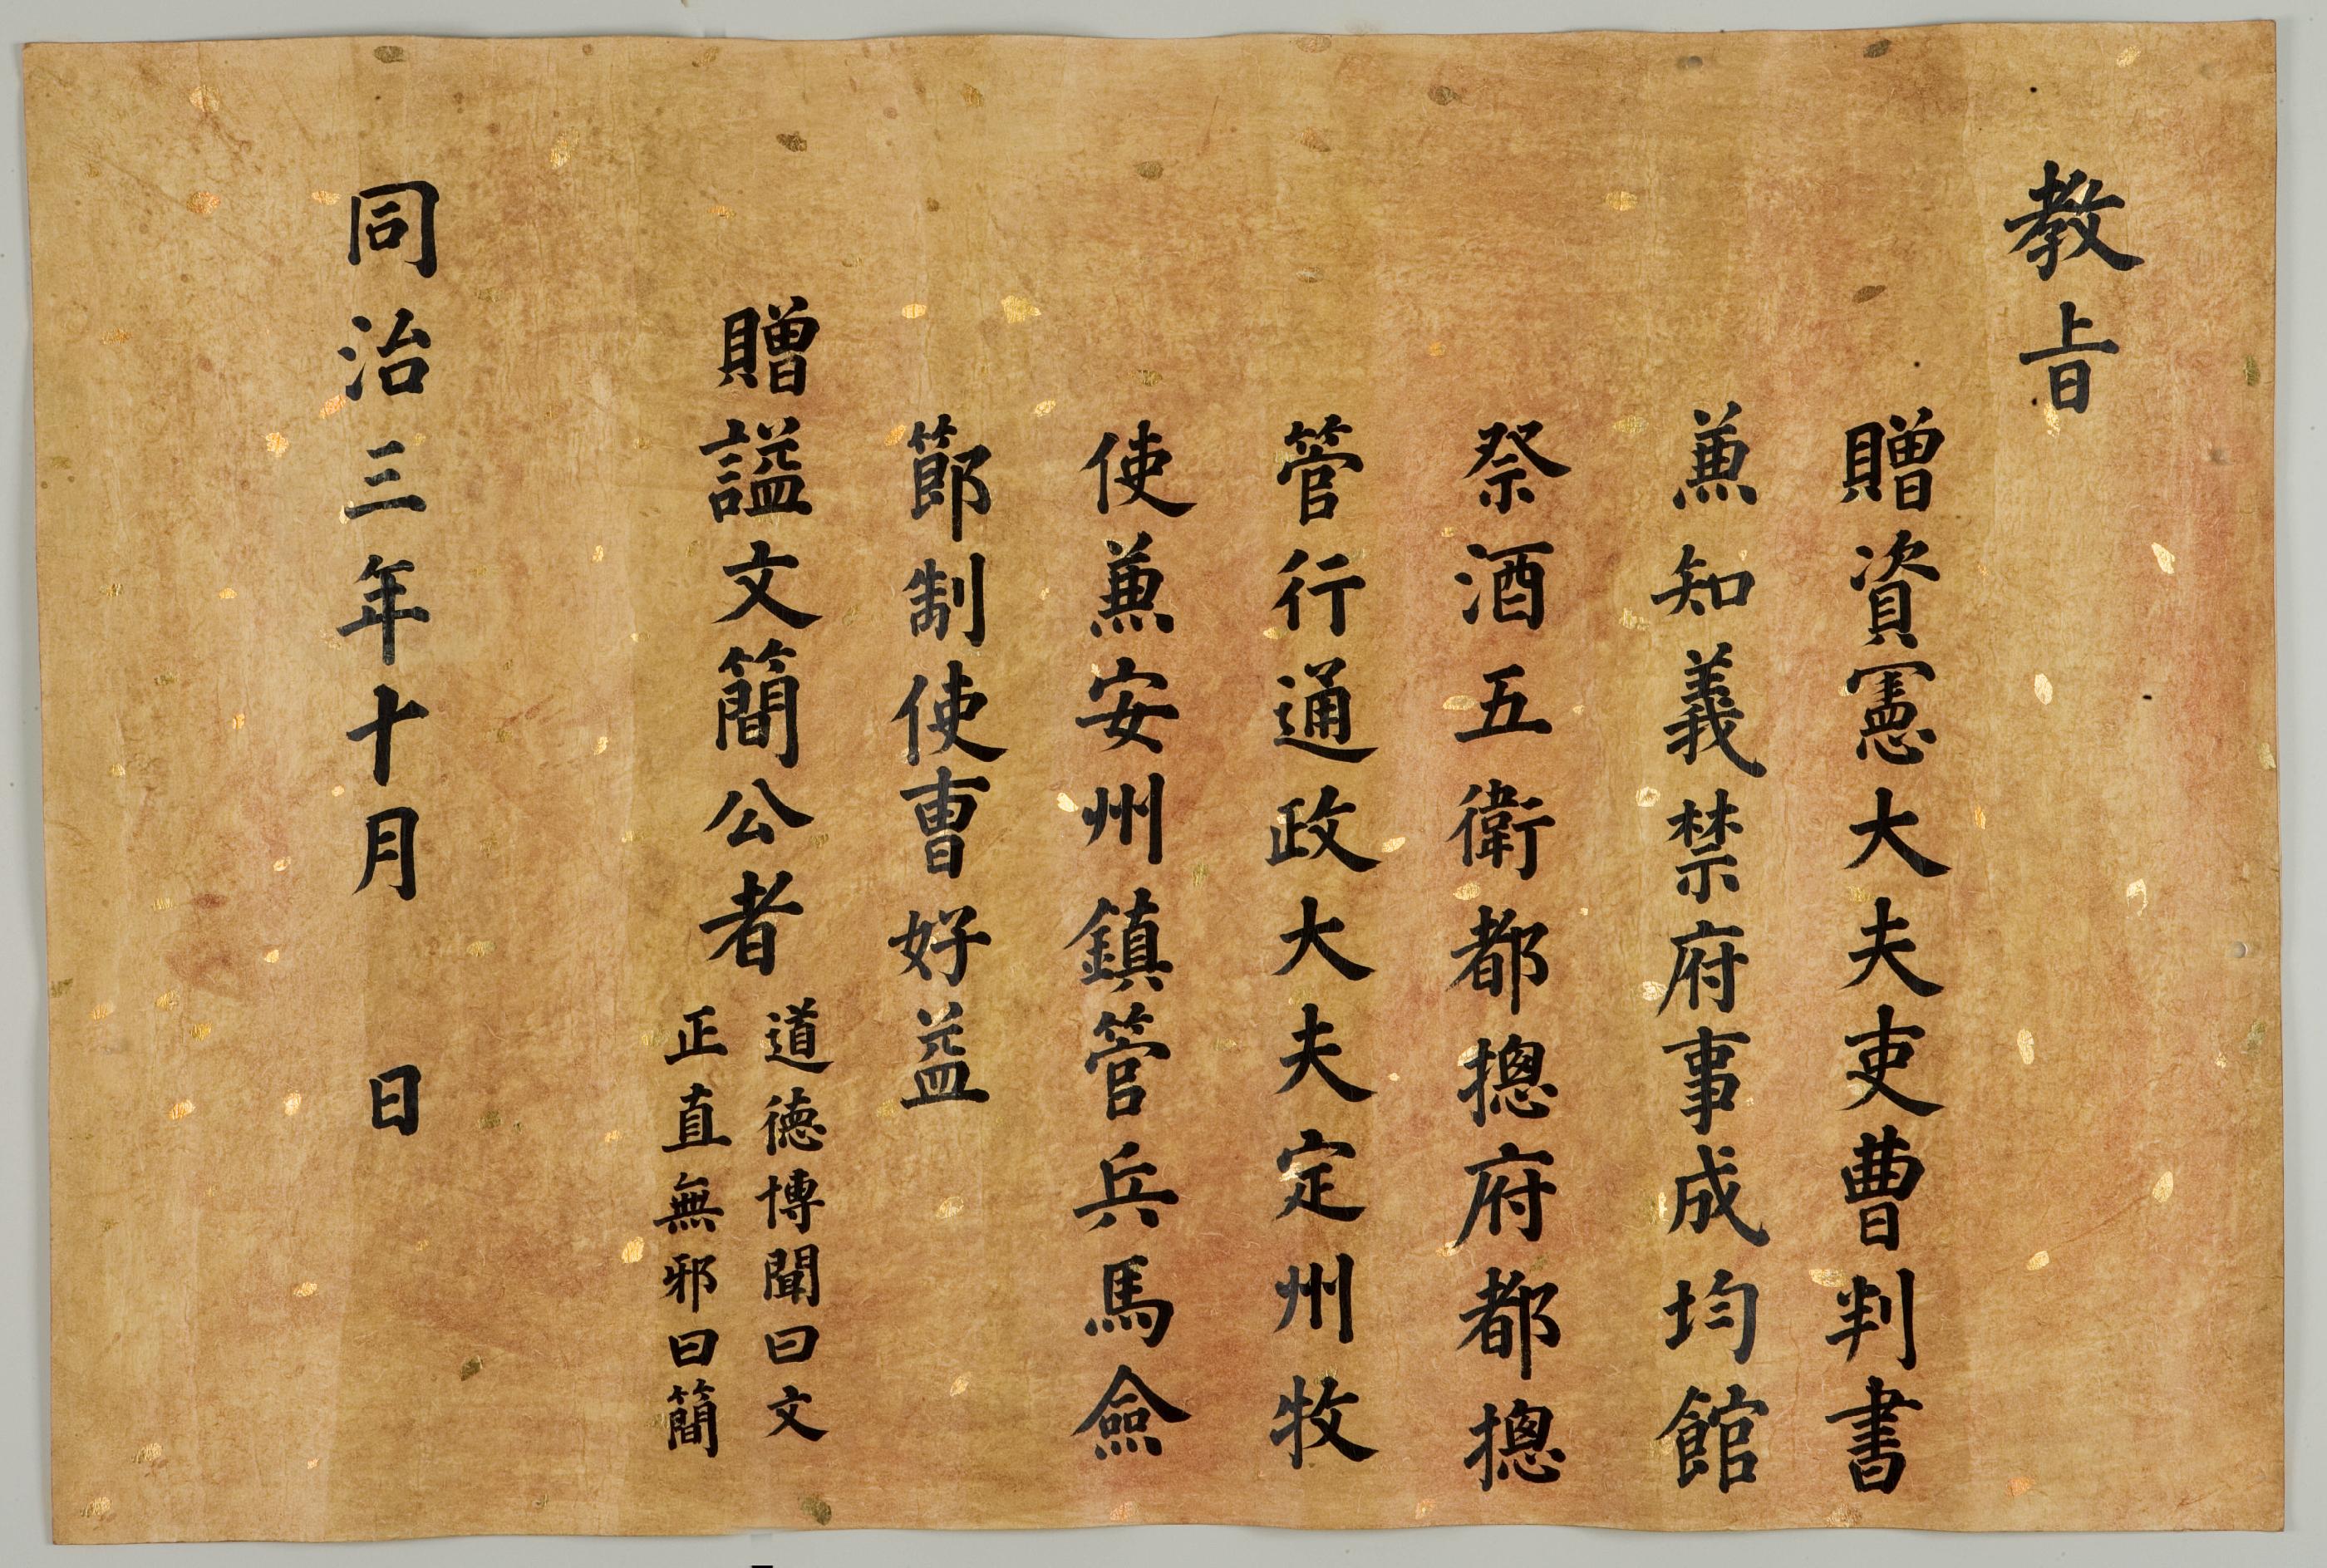 教旨
贈資憲大夫吏曹判書
兼知義禁府事成均館
祭酒五衛都摠府都摠
管行通政大夫定州牧
使兼安州鎮管兵馬僉
節制使曺好益
贈諡文簡公者
道德博聞曰文
正直無邪曰簡
同治三年十月 日